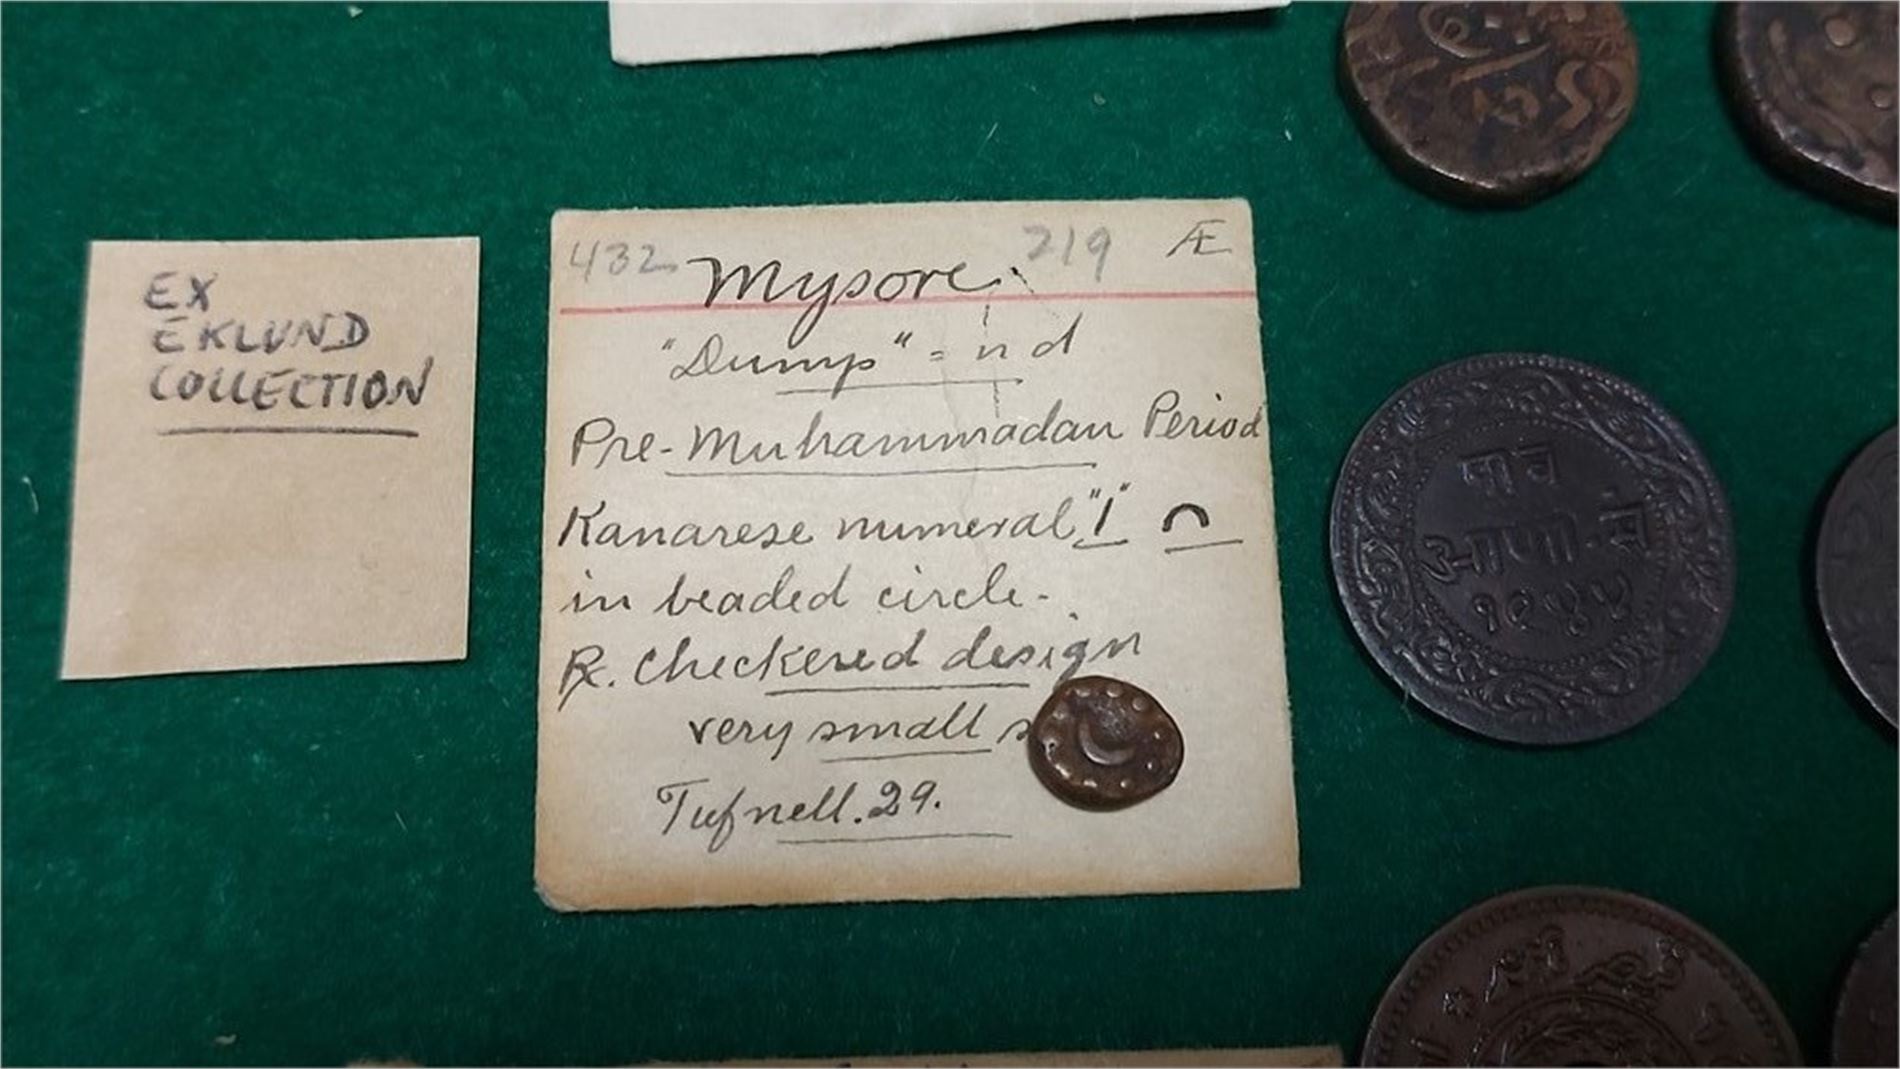 EX
EKLUND
COLLECTION
432 219 Æ
Mysore
"Dump" = n d
Pre-Muhammadan Period
Kanarese numeral "1" ೧
in beaded circle-
Rx. Checkered design
very small
Tufnell. 29.
पाव
आणा
१९४४